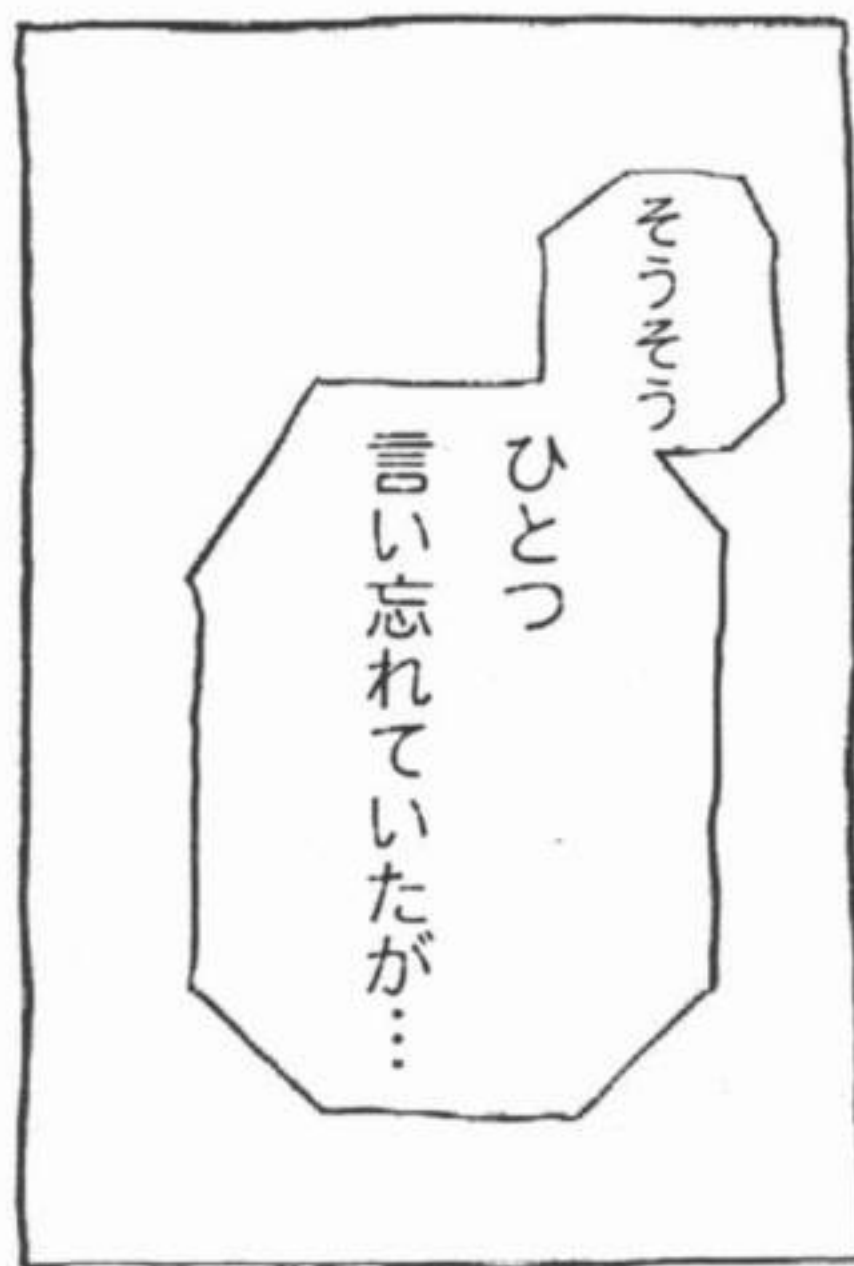 そうそう
ひとつ
言い忘れていたが…